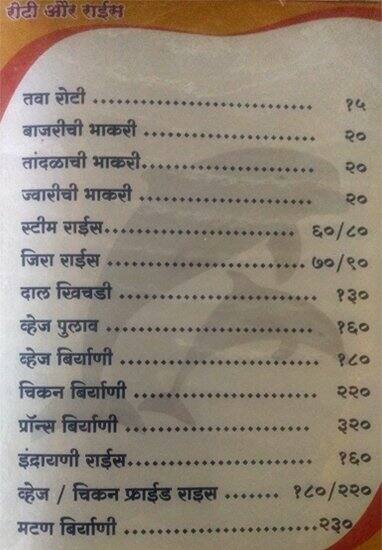 रोटी और राईस
तवा रोटी .......................... १५
बाजरीची भाकरी ..................... २०
तांदळाची भाकरी..................... २०
ज्वारीची भाकरी ..................... २०
स्टीम राईस........................ ६०/८०
जिरा राईस ........................ ७०/९०
दाल खिचडी ....................... १३०
व्हेज पुलाव ....................... १६०
व्हेज बिर्याणी ...................... १८०
चिकन बिर्याणी ..................... २२०
प्रॉन्स बिर्याणी ..................... ३२०
इंद्रायणी राईस...................... १६०
व्हेज / चिकन फ्राईड राइस ....... १८०/२२०
मटण बिर्याणी .....................२३०